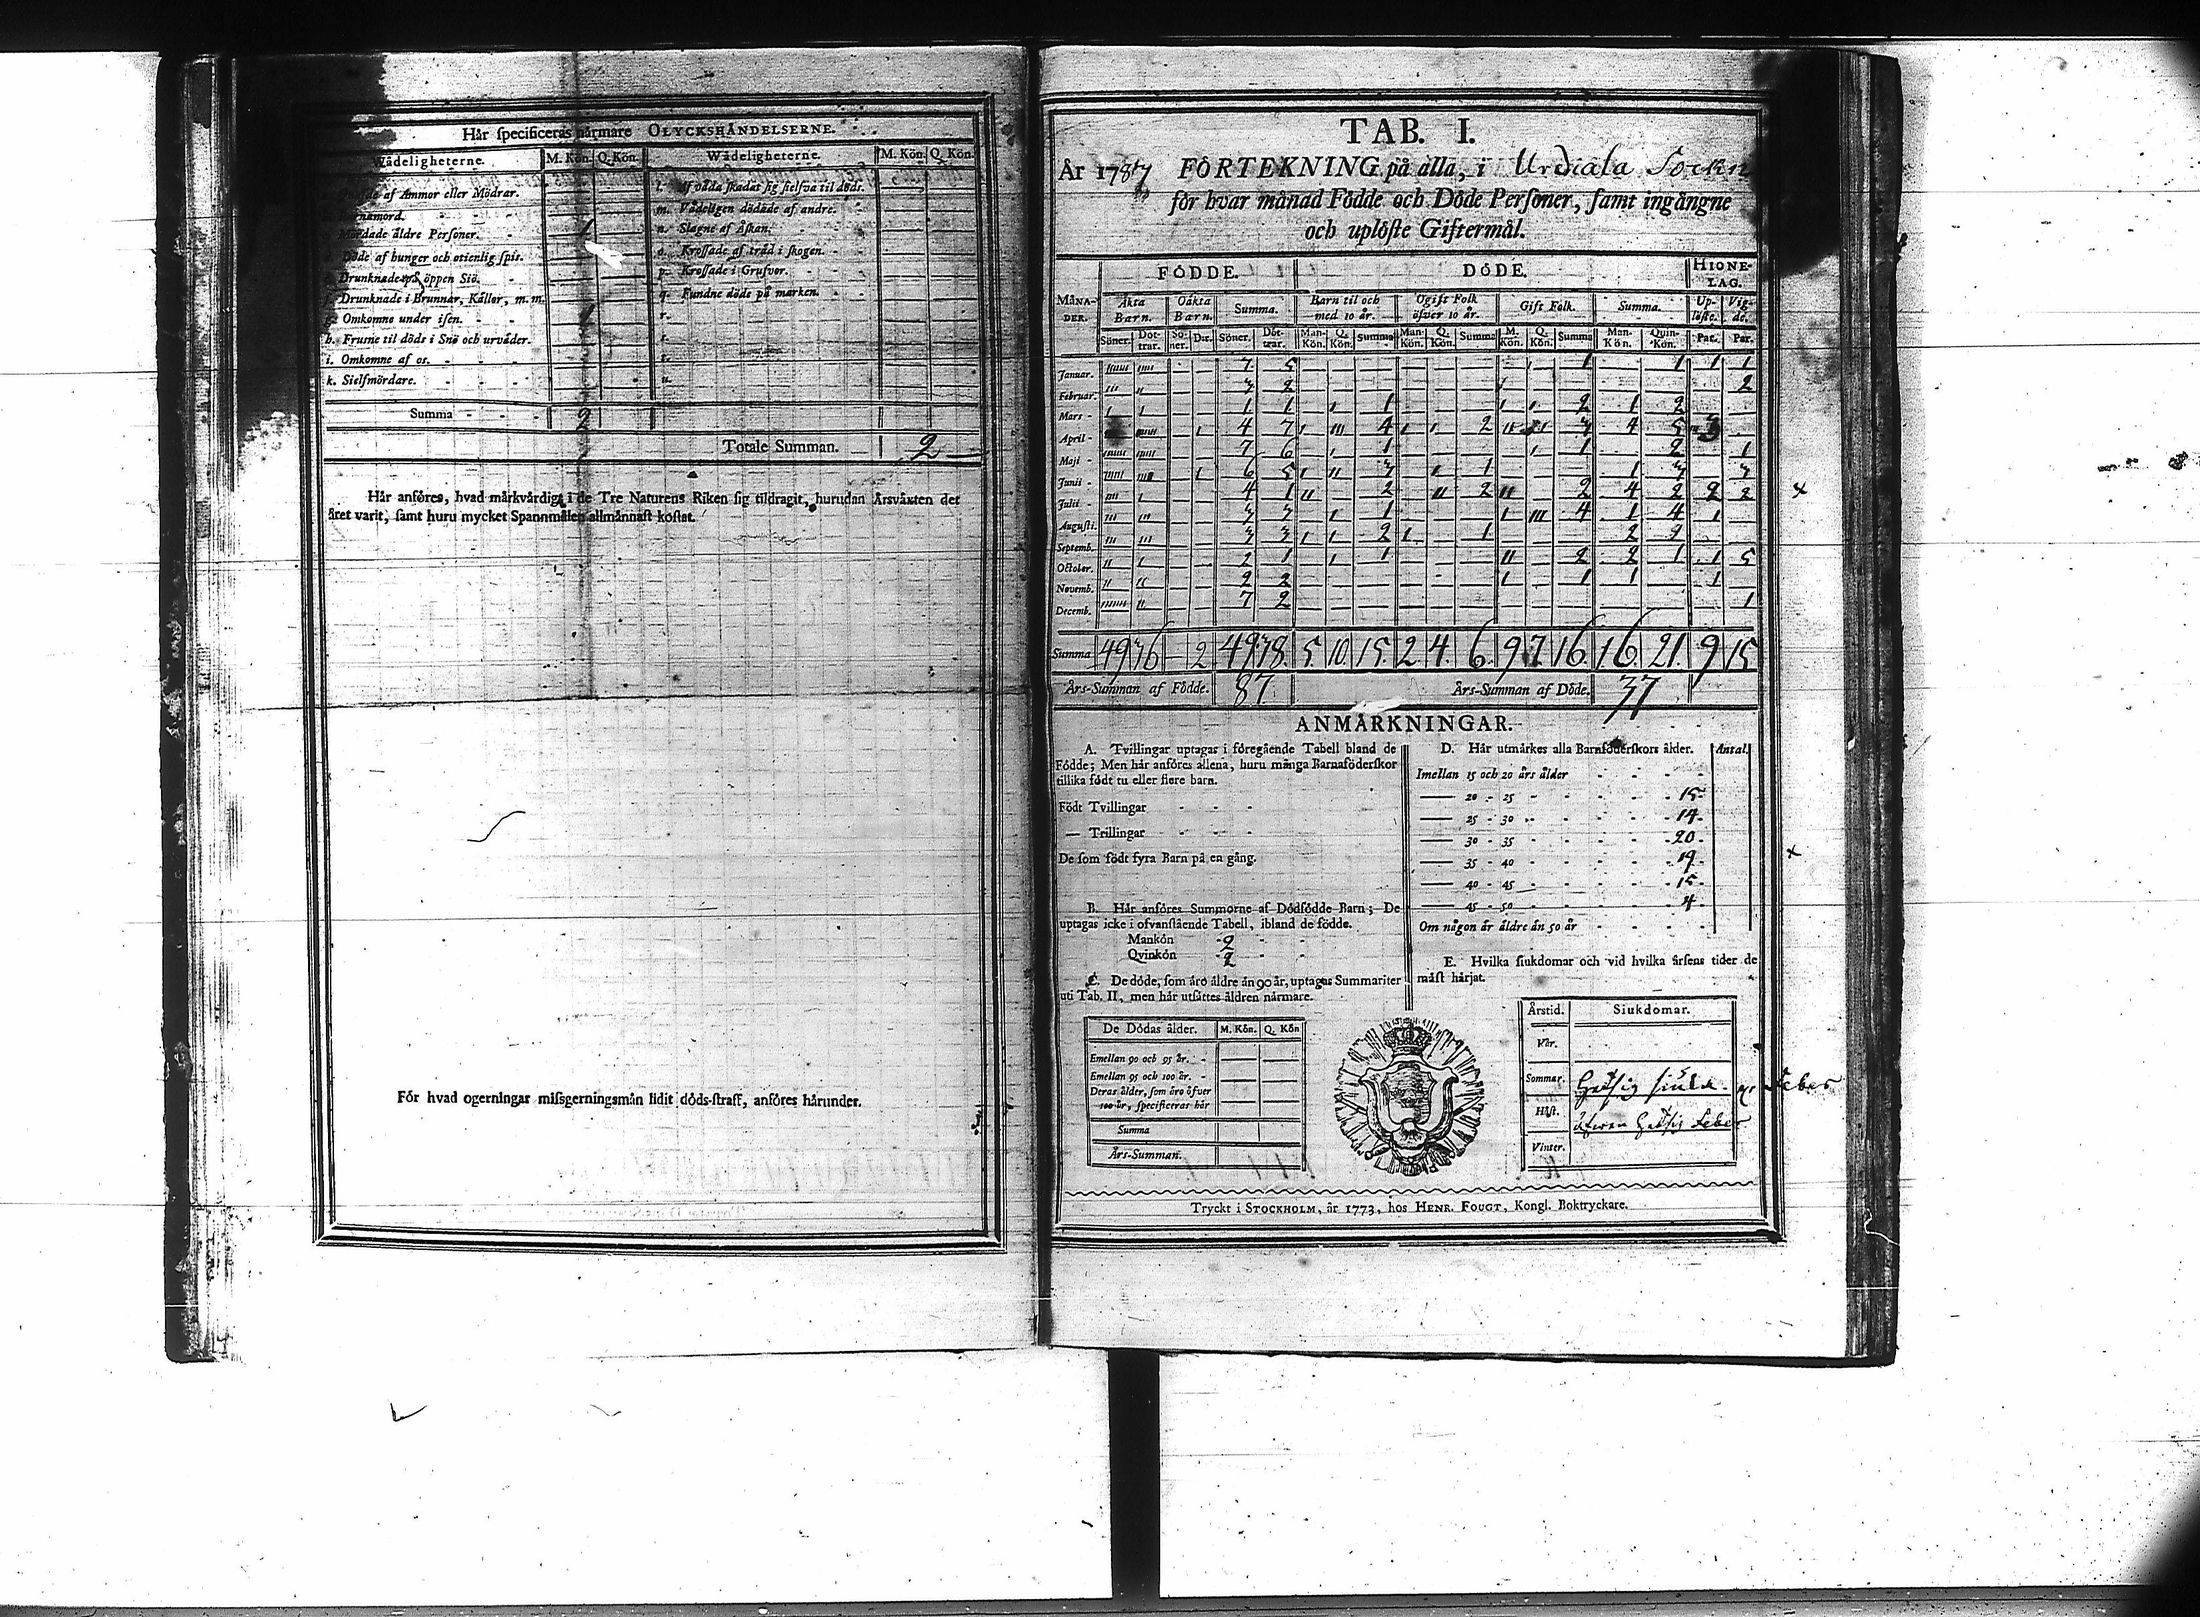 Här specificeras närmare OLYCKSHÄNDELSERNE.
Wådeligheterne. M. Kön. Q. Kön. Wådeligheterne. M. Kön. Q. Kön.
af Ammor eller Mödrar.
l. Af våda skadat sig sielfva til döds.
m. Vådeligen dödade af andre.
Mördade äldre Personer. 1
n. Slagne af Åskan.
d. Döde af hunger och otienlig spis.
o. Krossade af träd i skogen.
Drunknade på öppen Siö.
p. Krossade i Grufvor.
f. Drunknade i Brunnar, Källor, m. m.
q. Fundne döde på marken.
g. Omkomne under isen. 1
r.
h. Frusne til döds i Snö och urväder.
i. Omkomne af os.
t.
k. Sielfmördare.
u.
Summa 2
Totale Summan. 2
Här anföres, hvad märkvärdigt i de Tre Naturens Riken sig tildragit, hurudan Årsväxten det
året varit, samt huru mycket Spannmålen allmännast kostat.
För hvad ogerningar missgerningsmän lidit döds-straff, anföres härunder.
TAB. I.
År 1787 FÖRTEKNING på alla, i Urdiala Sockn
för hvar månad Födde och Döde Personer, samt ingångne
och uplöste Giftermål.
MÅNADER. FÖDDE. DÖDE. HIONELAG.
Äkta Barn. Oäkta Barn. Summa. Barn til och med 10 år. Ogift Folk öfver 10 år. Gift Folk. Summa. Uplöste. Vigde.
Söner. Döttrar. Söner. Dit. Söner. Döttrar. Man-Kön. Q. Kön. Summa Man-Kön. Q. Kön. Summa M. Kön. Q. Kön. Summa Man-Kön. Qvin-Kön. Par. Par.
Januar. 7 5 1 1 1 1
Februar. 3 2 2
Mars 1 1 1 2 1 2
April 4 7 4 2 3 4 5 3
Maji 7 6 1 1 2 1
Junii 6 5 3 1 1 3 3
Julii 4 1 2 2 2 4 2 2 2
Augusti. 3 3 1 4 1 4 1
Septemb. 3 3 2 1 2 2
October. 2 1 1 2 2 1 1 5
Novemb. 2 2 1 1 1
Decemb. 7 2 1
Summa 49 36 2 49 38. 5. 10. 15. 2. 4. 6. 9 7 16. 16. 21. 9 15
Års-Summan af Födde. 87. Års-Summan af Döde. 37
ANMÄRKNINGAR.
A. Tvillingar uptagas i föregående Tabell bland de
Födde; Men här anföres allena, huru många Barnaföderskor
tillika födt tu eller flere barn.
Födt Tvillingar
— Trillingar
De som födt fyra Barn på en gång.
B. Här anföres Summorne af Dödfödde Barn; De
uptagas icke i ofvanstående Tabell, ibland de födde.
Mankön 2
Qvinkön 2
C. De döde, som äro äldre än 90 år, uptagas Summariter
uti Tab. II, men här utsättes åldren närmare.
De Dödas ålder. M. Kön. Q. Kön
Emellan 90 och 95 år.
Emellan 95 och 100 år.
Deras ålder, som äro öfver
100 år, specificeras här
Summa
Års-Summan.
D. Här utmärkes alla Barnföderskors ålder. Antal.
Imellan 15 och 20 års ålder
20 - 25 15
25 - 30 14
30 - 35 20
35 - 40 19
40 - 45 15
45 - 50 4
Om någon är äldre än 50 år
E. Hvilka siukdomar och vid hvilka årsens tider de
mäst härjat.
Årstid. Siukdomar.
Vår.
Sommar. Hetsig siuka feber
Höst. Hetsig feber
Vinter.
Tryckt i STOCKHOLM, år 1773, hos HENR. FOUGT, Kongl. Boktryckare.